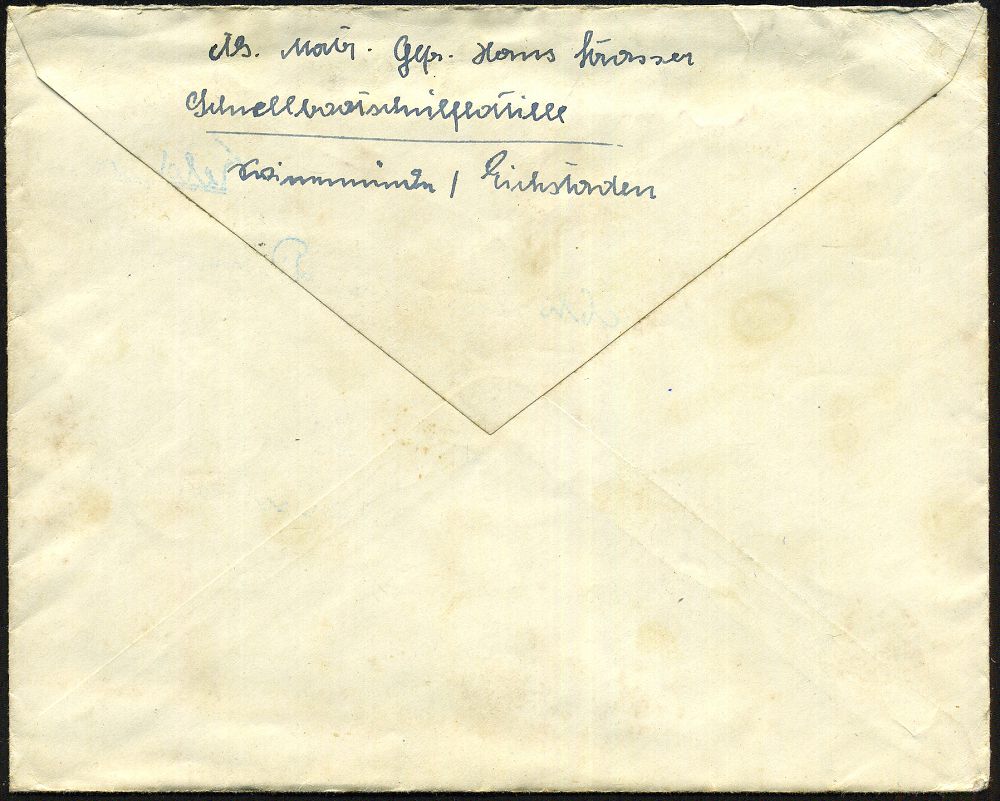 Abs. Matr. Gefr. Hans Strasser
Schnellbootschulflottille
Swinemünde / Eichstaden